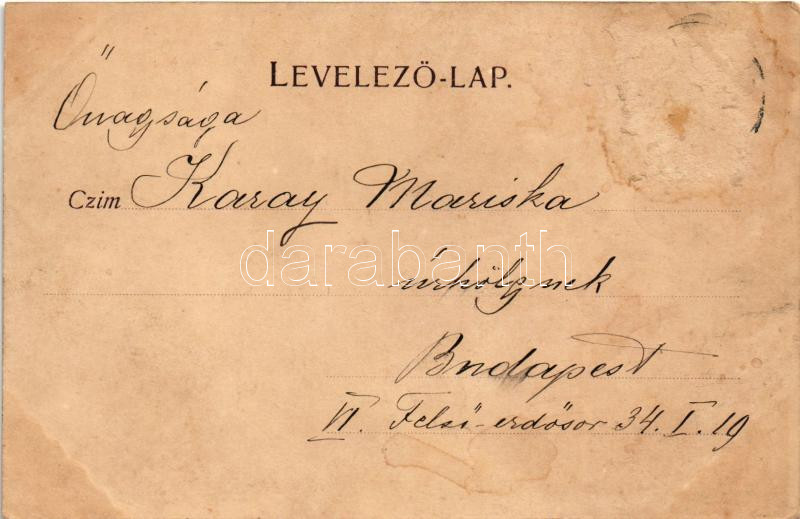 LEVELEZÖ-LAP.
Őnagsága
Czim Karay Mariska
darabanth
úrhölgynek
Budapest
VI. Felső-erdősor 34. I. 19